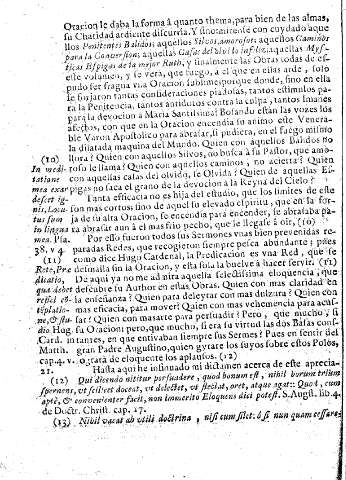 Oracion le daba la forma à quanto thema, para bien de las almas,
su Charidad ardiente discurria. Y sinotaisente con cuydado aque
llos Penitentes Balidos: aquellos Silvos amorosos: aquellos Caminos
para la Conversion: aquellas Casas del olvido : aquellas Mys-
ticas Espigas de la mejor Ruth, y finalmente las Obras todas de es-
te volumen, y se verà, que fuego, à el que en ellas arde, solo
pudo ser fragua vna Oracion sublime; porque donde, sino en ella
se forjaron tantas consideraciones piadosas, tantos estimulos pa-
ra la Penitencia, tantos antidotos contra la culpa, tantos Imanes
para la devocion à Maria Santissima? Bolando estàn las vozes los
afectos, con que en la Oracion encendia su animo este Venera-
ble Varon Apostolico para abrasar, si pudiera, en el fuego mismo
la dilatada maquina del Mundo. Quien con aquellos Balidos no
(10) llora? Quien con aquellos Silvos, no busca à su Pastor, que amo-
In medi- roso le llama? Quien con aquellos caminos, no acierta? Quien
tatione con aquellas casas del olvido, se Olvida? Quien de aquellas Es-
mea exar pigas no saca el grano de la devocion à la Reyna del Cielo?
descet ig- Tanta efficacia no es hija del estudio, que los limites de este
nis, Locu- son mas cortos: sino de aquel su elevado espiritu, que en la for-
tus sum ja de su alta Oracion, se encendia para encender, se abrasaba pa-
in lingua ra abrasar aun à el mas frio pecho, que le llegasse à oir, (10)
mea. Psa. Por esso fueron todos sus Sermones vnas bien prevenidas re-
38. v 4. paradas Redes, que recogieron siempre pesca abundante; pues
(11) como dice Hugo Cardenal, la Predicacion es vna Red, que se
Rete, Præ desmalla sin la Oracion, y esta sola la buelve à hacer servir. (11)
dicatio, De aqui ya no me admira aquella selectissima eloquencia, que
qua debet defcubre su Author en estas Obras. Quien con mas claridad en
refici ex la enseñanza? Quien para deleytar con mas dulzura? Quien con
templatio- mas eficacia, para mover? Quien con mas vehemencia para acus-
ne, & stu- far? Quien con masarte para persuadir? Pero, que mucho, si
dio Hug. su Oracion; pero, que mucho, si era su virtud las dos Basas cons-
Card. in tantes, en que entivaban siempre sus Sermes? Pues en sentir del
Matth. gran Padre Augustino, quien gyrare los suyos sobre estos Polos,
cap. 4. v. gozarà de eloquente los aplausos. (12)
21. Hasta aqui he insinuado mi dictamen acerca de este aprecia-
(12) Qui dicendo nititur persuadere, quod bonum est, nihil horum trium
spernens, ut scilicet doceat, ut delectet, ut flectat, oret, atque agat:: Quod, cum
aptè, & convenienter facit, non immerito Eloquens dici potest. S. Augst. lib. 4.
de Doctr. Christ. cap. 17.
(13) Nihil vacat ab utili doctrina, nisi cum silet: ò si nun quam cessare-